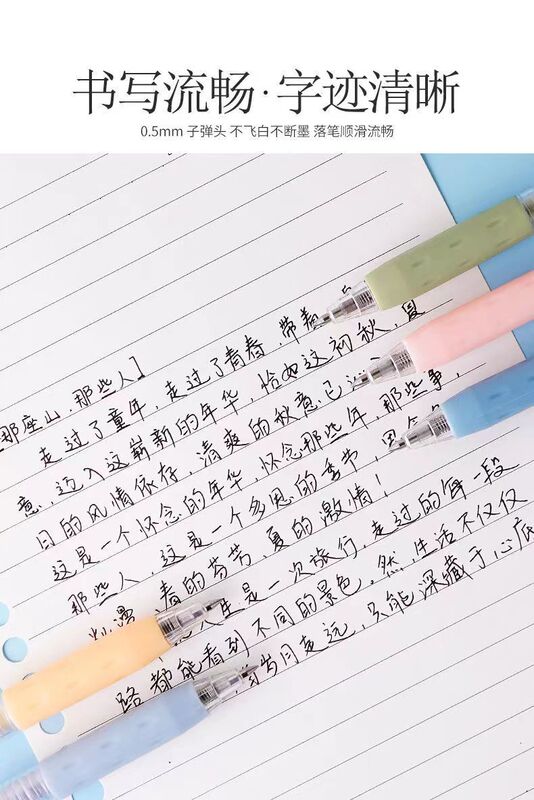 书写流畅·字迹清晰
0.5mm 子弹头 不飞白不断墨 落笔顺滑流畅
那座山.那些人]
走过了童年,走过了青春,带着
意,迈入这崭新的年华,恰如这初秋,夏
日的风情依存,清爽的秋意已
这是一个怀念的年华,怀念那些年,那些事,
那些人,这是一个多思的季节,思念
漫,春的芬芳,夏的激情!
人生是一次旅行,走过的每一段
路都能看到不同的景色,然,生活不仅仅
岁月走远,只能深藏于心底